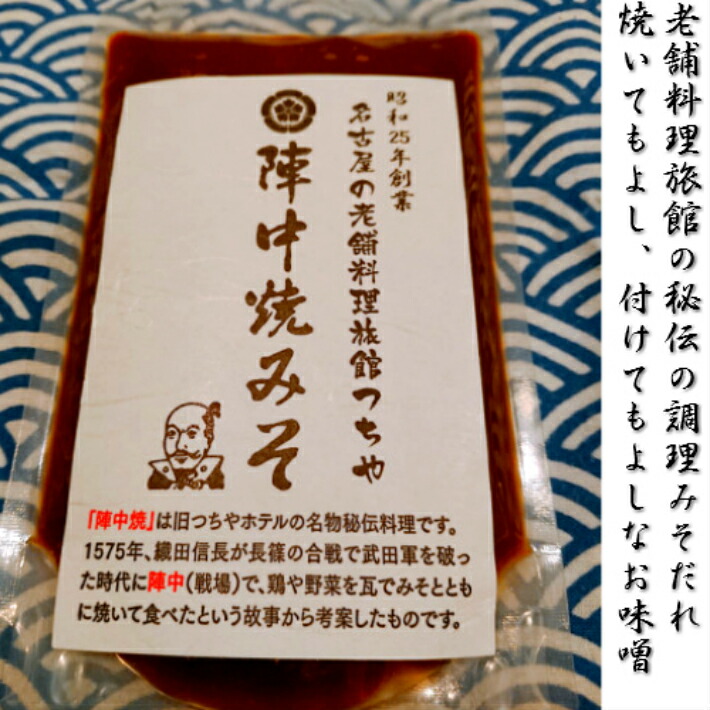 老舗料理旅館の秘伝の調理みそだれ
焼いてもよし、付けてもよしなお味噌
昭和25年創業
名古屋の老舗料理旅館つちや
陣中焼みそ
「陣中焼」は旧つちやホテルの名物秘伝料理です。
1575年、織田信長が長篠の合戦で武田軍を破っ
た時代に陣中(戦場)で、鶏や野菜を瓦でみそととも
に焼いて食べたという故事から考案したものです。